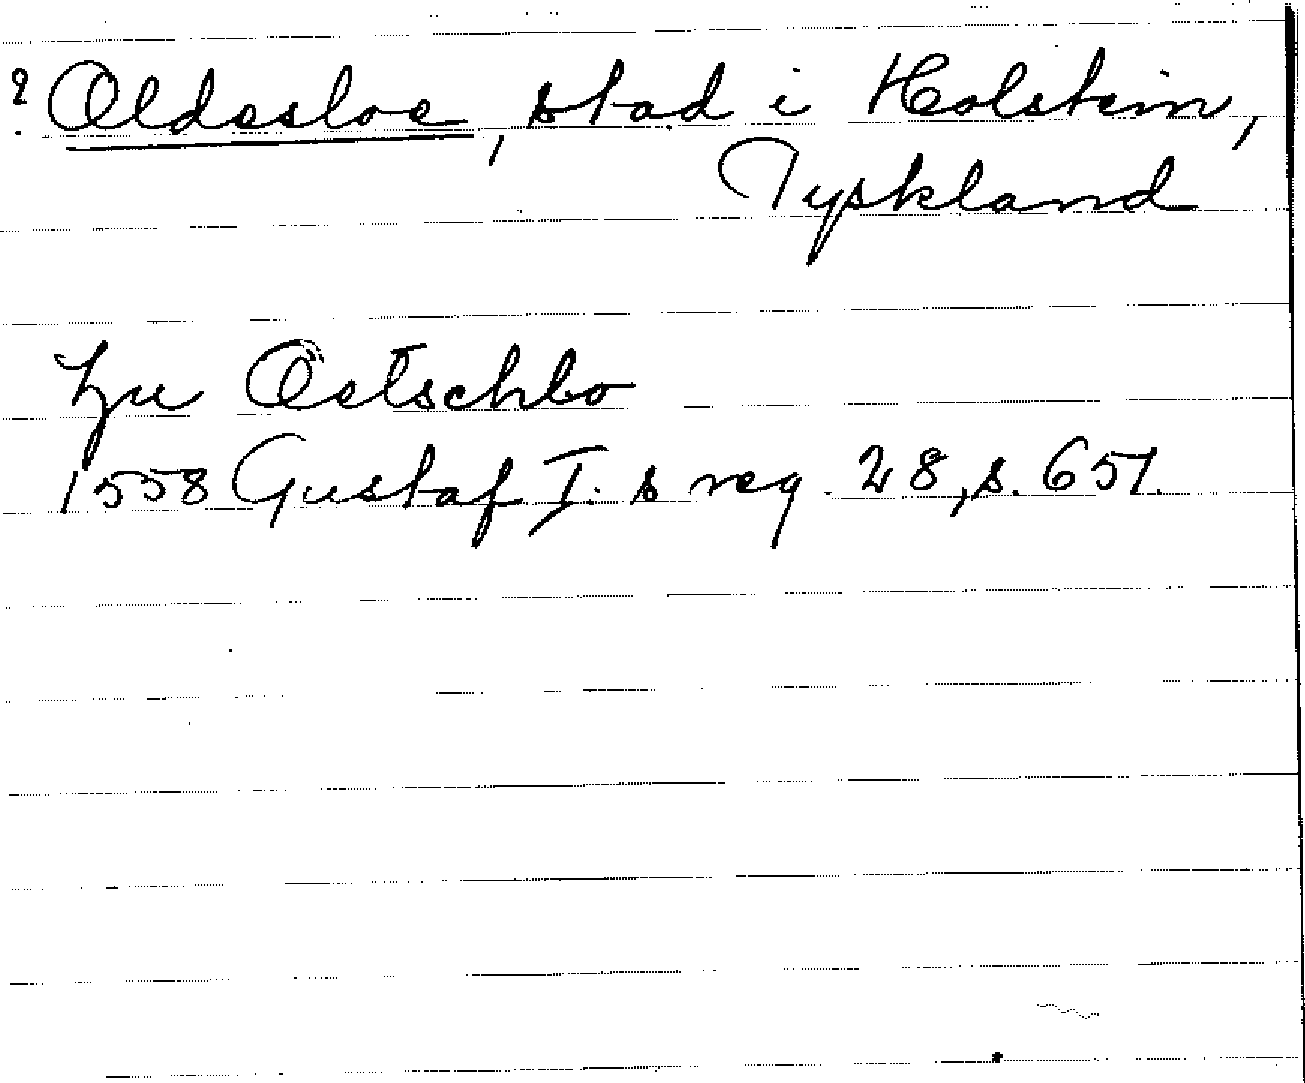 ? Oldesloe, stad i Holstein,
Tyskland
zu Öeltschlo
1558 Gustaf I:s reg. 28, s. 651.